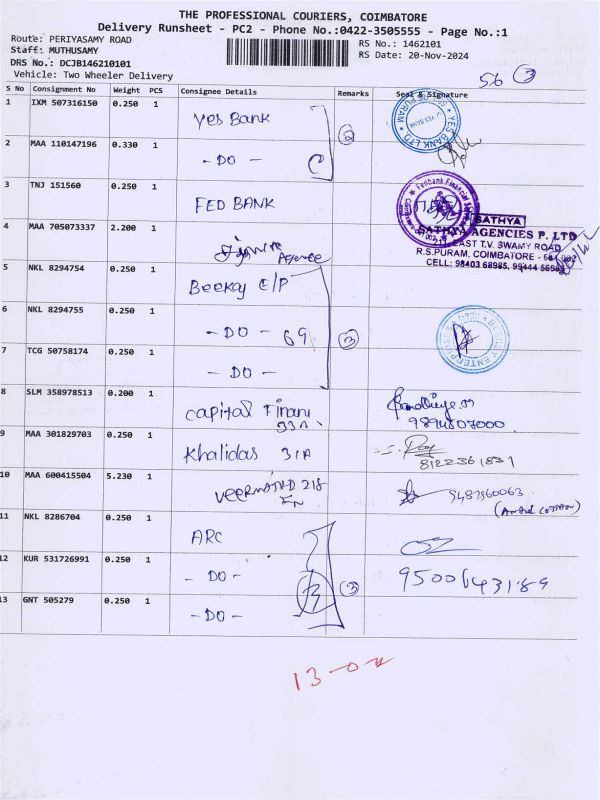 THE PROFESSIONAL COURIERS, COIMBATORE
Delivery Runsheet - PC2 - Phone No.:0422-3505555 - Page No.:1
Route: PERIYASAMY ROAD
Staff: MUTHUSAMY
DRS No.: DCJB146210101
Vehicle: Two Wheeler Delivery
RS No.: 1462101
RS Date: 20-Nov-2024
56 3
S No Consignment No Weight PCS Consignee Details Remarks Seal & Signature
1 IXM 507316150 0.250 1 Yes Bank
YES BANK LTD
2
2 MAA 110147196 0.330 1 - DO -
3 TNJ 151560 0.250 1 FED BANK
Fedbank Financial
4 MAA 705073337 2.200 1 Agence
SATHYA
SATHYA AGENCIES P. LTD
EAST T.V. SWAMY ROAD
R.S.PURAM, COIMBATORE - 641 002
CELL: 98403 68985, 99444 56985
5 NKL 8294754 0.250 1 Beekay E/P
6 NKL 8294755 0.250 1 - DO - 69 3
7 TCG 50758174 0.250 1 - DO -
8 SLM 358978513 0.200 1 Capital Finani
9894807000
9 MAA 301829703 0.250 1 Khalidas 31A
8122361831
10 MAA 600415504 5.230 1 218
9487960063
11 NKL 8286704 0.250 1 ARC
12 KUR 531726991 0.250 1 - DO - 13 3
9500643189
13 GNT 505279 0.250 1 - DO -
13-0-